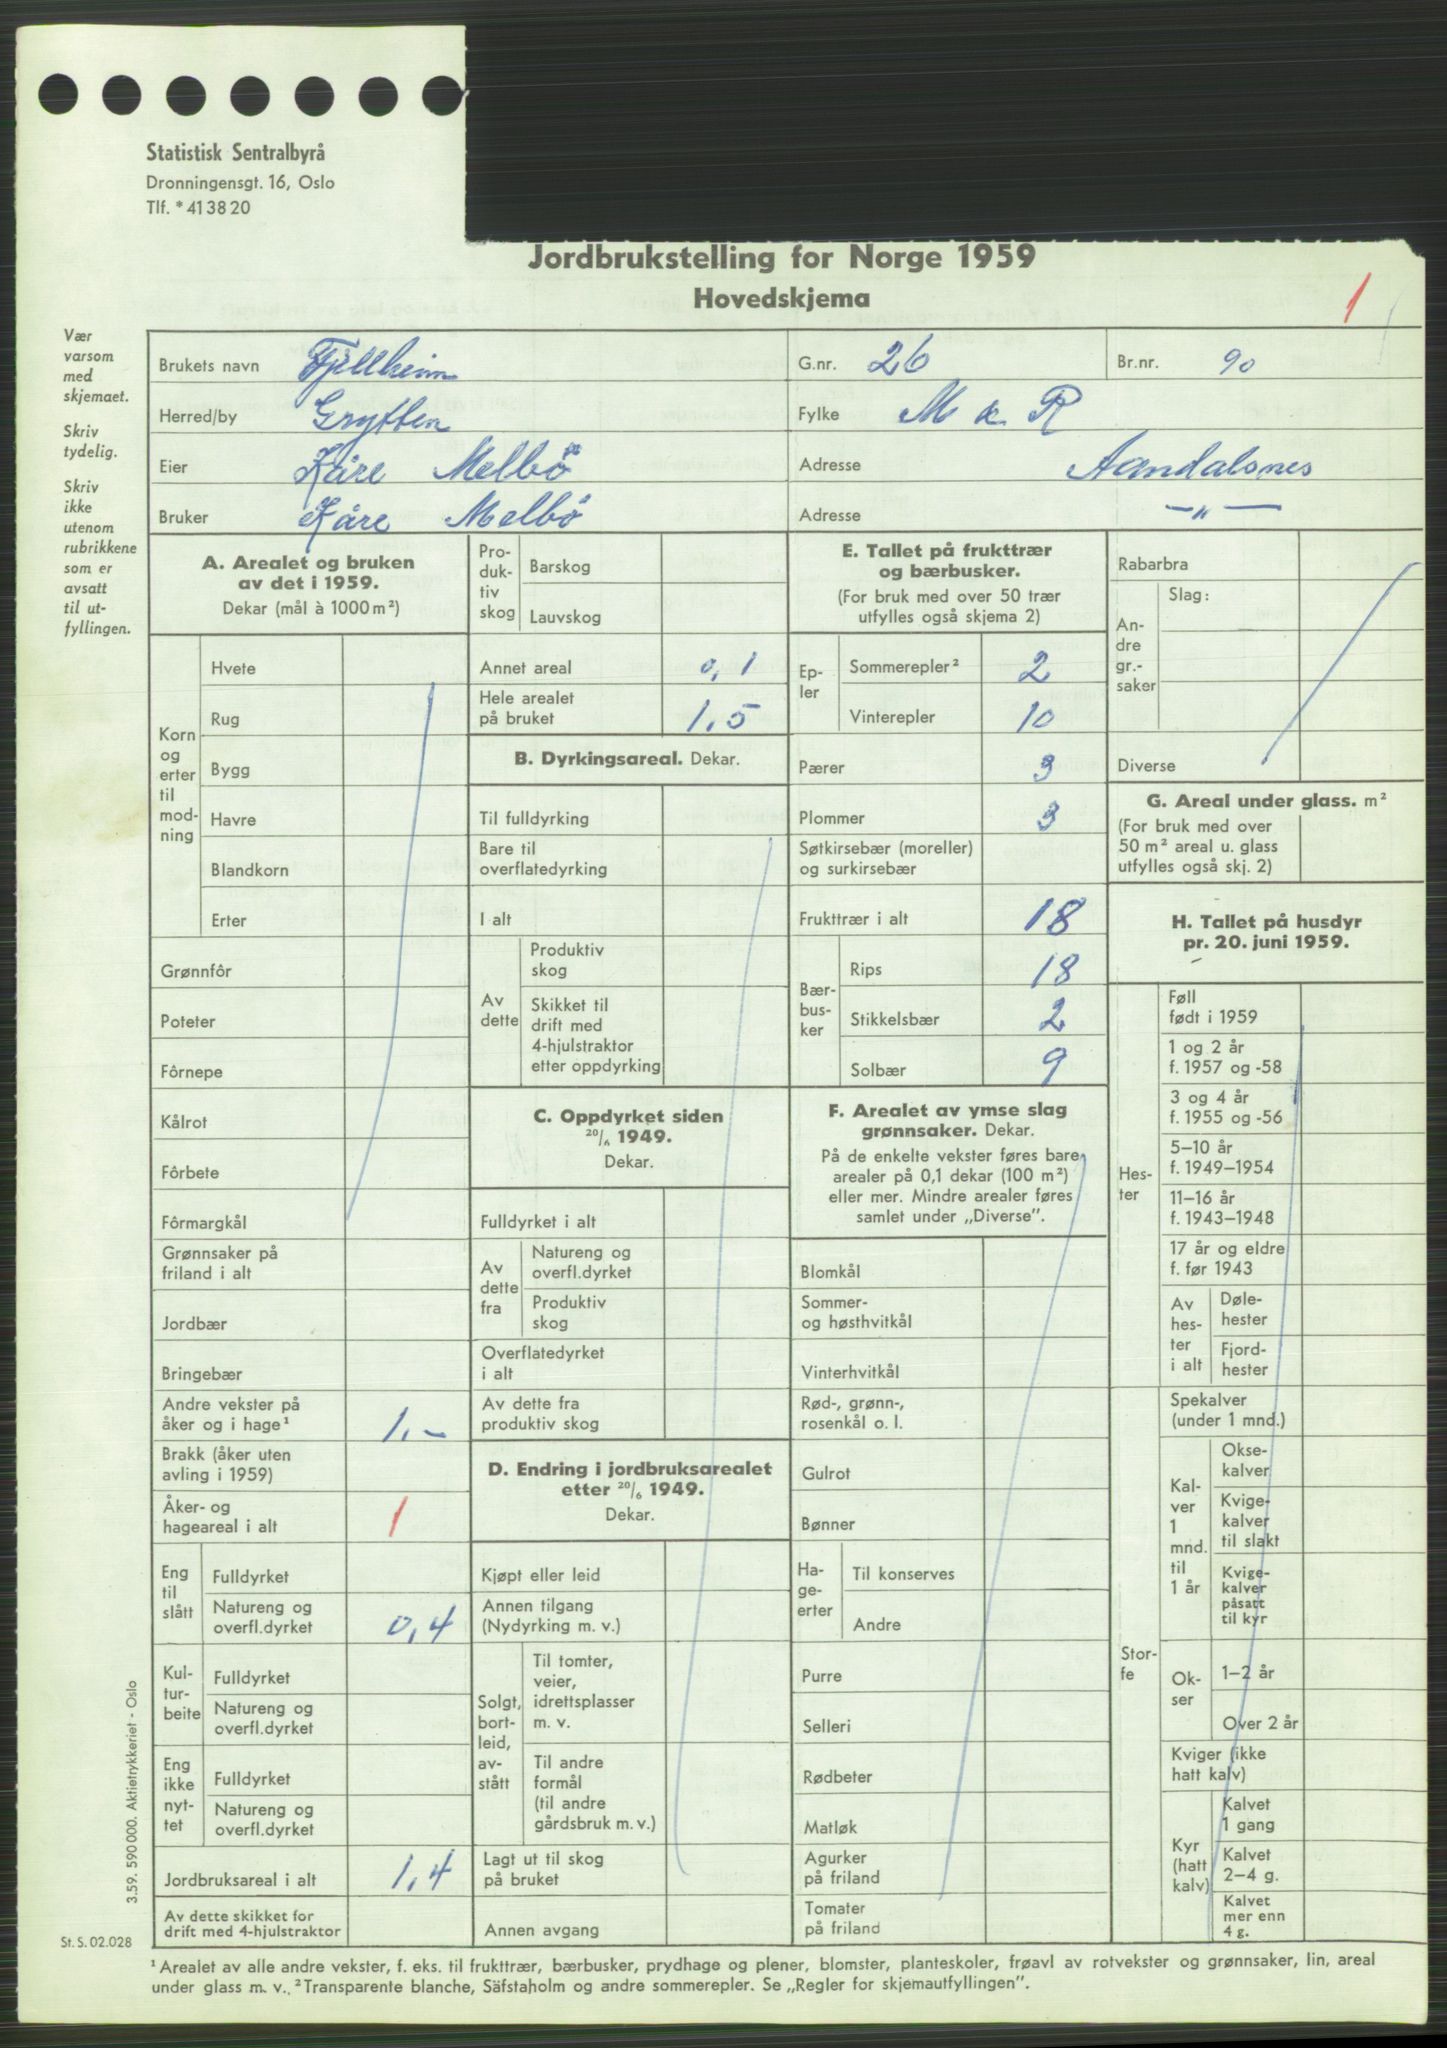 Statistisk Sentralbyrå
Dronningensgt. 16, Oslo
Tlf. * 41 38 20
Jordbrukstelling for Norge 1959
Hovedskjema
1
Vær
varsom
med
skjemaet.
Skriv
tydelig.
Skriv
ikke
utenom
rubrikkene
som er
avsatt
til ut-
fyllingen.
Brukets navn Fjellheim G.nr. 26 Br.nr. 90
Herred/by Grytten Fylke M & R
Eier Kåre Melbö Adresse Aandalsnes
Bruker Kåre Melbö Adresse — „ —
A. Arealet og bruken
av det i 1959.
Dekar (mål à 1000 m²)
Korn
og
erter
til
mod-
ning
Hvete
Rug
Bygg
Havre
Blandkorn
Erter
Grønnfôr
Poteter
Fôrnepe
Kålrot
Fôrbete
Fôrmargkål
Grønnsaker på
friland i alt
Jordbær
Bringebær
Andre vekster på
åker og i hage¹ 1.-
Brakk (åker uten
avling i 1959)
Åker- og
hageareal i alt 1
Eng
til
slått
Fulldyrket
Natureng og
overfl.dyrket 0,4
Kul-
tur-
beite
Fulldyrket
Natureng og
overfl.dyrket
Eng
ikke
nyt-
tet
Fulldyrket
Natureng og
overfl.dyrket
Jordbruksareal i alt 1,4
Av dette skikket for
drift med 4-hjulstraktor
Pro-
duk-
tiv
skog
Barskog
Lauvskog
Annet areal 0,1
Hele arealet
på bruket 1,5
B. Dyrkingsareal. Dekar.
Til fulldyrking
Bare til
overflatedyrking
I alt
Av
dette
Produktiv
skog
Skikket til
drift med
4-hjulstraktor
etter oppdyrking
C. Oppdyrket siden
20/6 1949.
Dekar.
Fulldyrket i alt
Av
dette
fra
Natureng og
overfl.dyrket
Produktiv
skog
Overflatedyrket
i alt
Av dette fra
produktiv skog
D. Endring i jordbruksarealet
etter 20/6 1949.
Dekar.
Kjøpt eller leid
Annen tilgang
(Nydyrking m. v.)
Solgt,
bort-
leid,
av-
stått
Til tomter,
veier,
idrettsplasser
m. v.
Til andre
formål
(til andre
gårdsbruk m. v.)
Lagt ut til skog
på bruket
Annen avgang
E. Tallet på frukttrær
og bærbusker.
(For bruk med over 50 trær
utfylles også skjema 2)
Ep-
ler
Sommerepler² 2
Vinterepler 10
Pærer 3
Plommer 3
Søtkirsebær (moreller)
og surkirsebær
Frukttrær i alt 18
Bær-
bus-
ker
Rips 18
Stikkelsbær 2
Solbær 9
F. Arealet av ymse slag
grønnsaker. Dekar.
På de enkelte vekster føres bare
arealer på 0,1 dekar (100 m²)
eller mer. Mindre arealer føres
samlet under „Diverse”.
Blomkål
Sommer-
og høsthvitkål
Vinterhvitkål
Rød-, grønn-,
rosenkål o. l.
Gulrot
Bønner
Ha-
ge-
erter
Til konserves
Andre
Purre
Selleri
Rødbeter
Matløk
Agurker
på friland
Tomater
på friland
Rabarbra
An-
dre
gr.-
saker
Slag:
Diverse
G. Areal under glass. m²
(For bruk med over
50 m² areal u. glass
utfylles også skj. 2)
H. Tallet på husdyr
pr. 20. juni 1959.
Hes-
ter
Føll
født i 1959
1 og 2 år
f. 1957 og -58
3 og 4 år
f. 1955 og -56
5–10 år
f. 1949–1954
11–16 år
f. 1943–1948
17 år og eldre
f. før 1943
Av
hes-
ter
i alt
Døle-
hester
Fjord-
hester
Stor-
fe
Spekalver
(under 1 mnd.)
Kal-
ver
1
mnd.
til
1 år
Okse-
kalver
Kvige-
kalver
til slakt
Kvige-
kalver
påsatt
til kyr
Ok-
ser
1–2 år
Over 2 år
Kviger (ikke
hatt kalv)
Kyr
(hatt
kalv)
Kalvet
1 gang
Kalvet
2–4 g.
Kalvet
mer enn
4 g.
3.59. 590 000. Aktietrykkeriet - Oslo
St. S. 02.028
¹ Arealet av alle andre vekster, f. eks. til frukttrær, bærbusker, prydhage og plener, blomster, planteskoler, frøavl av rotvekster og grønnsaker, lin, areal
under glass m. v.. ² Transparente blanche, Säfstaholm og andre sommerepler. Se „Regler for skjemautfyllingen”.